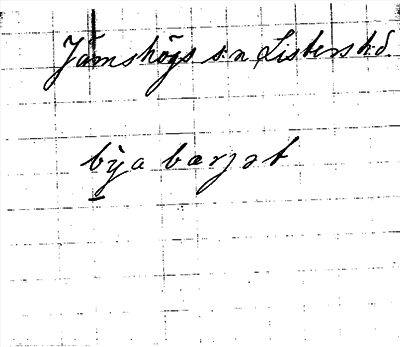 Jämshögs s:n Listers h:d.
bỳa bærjət